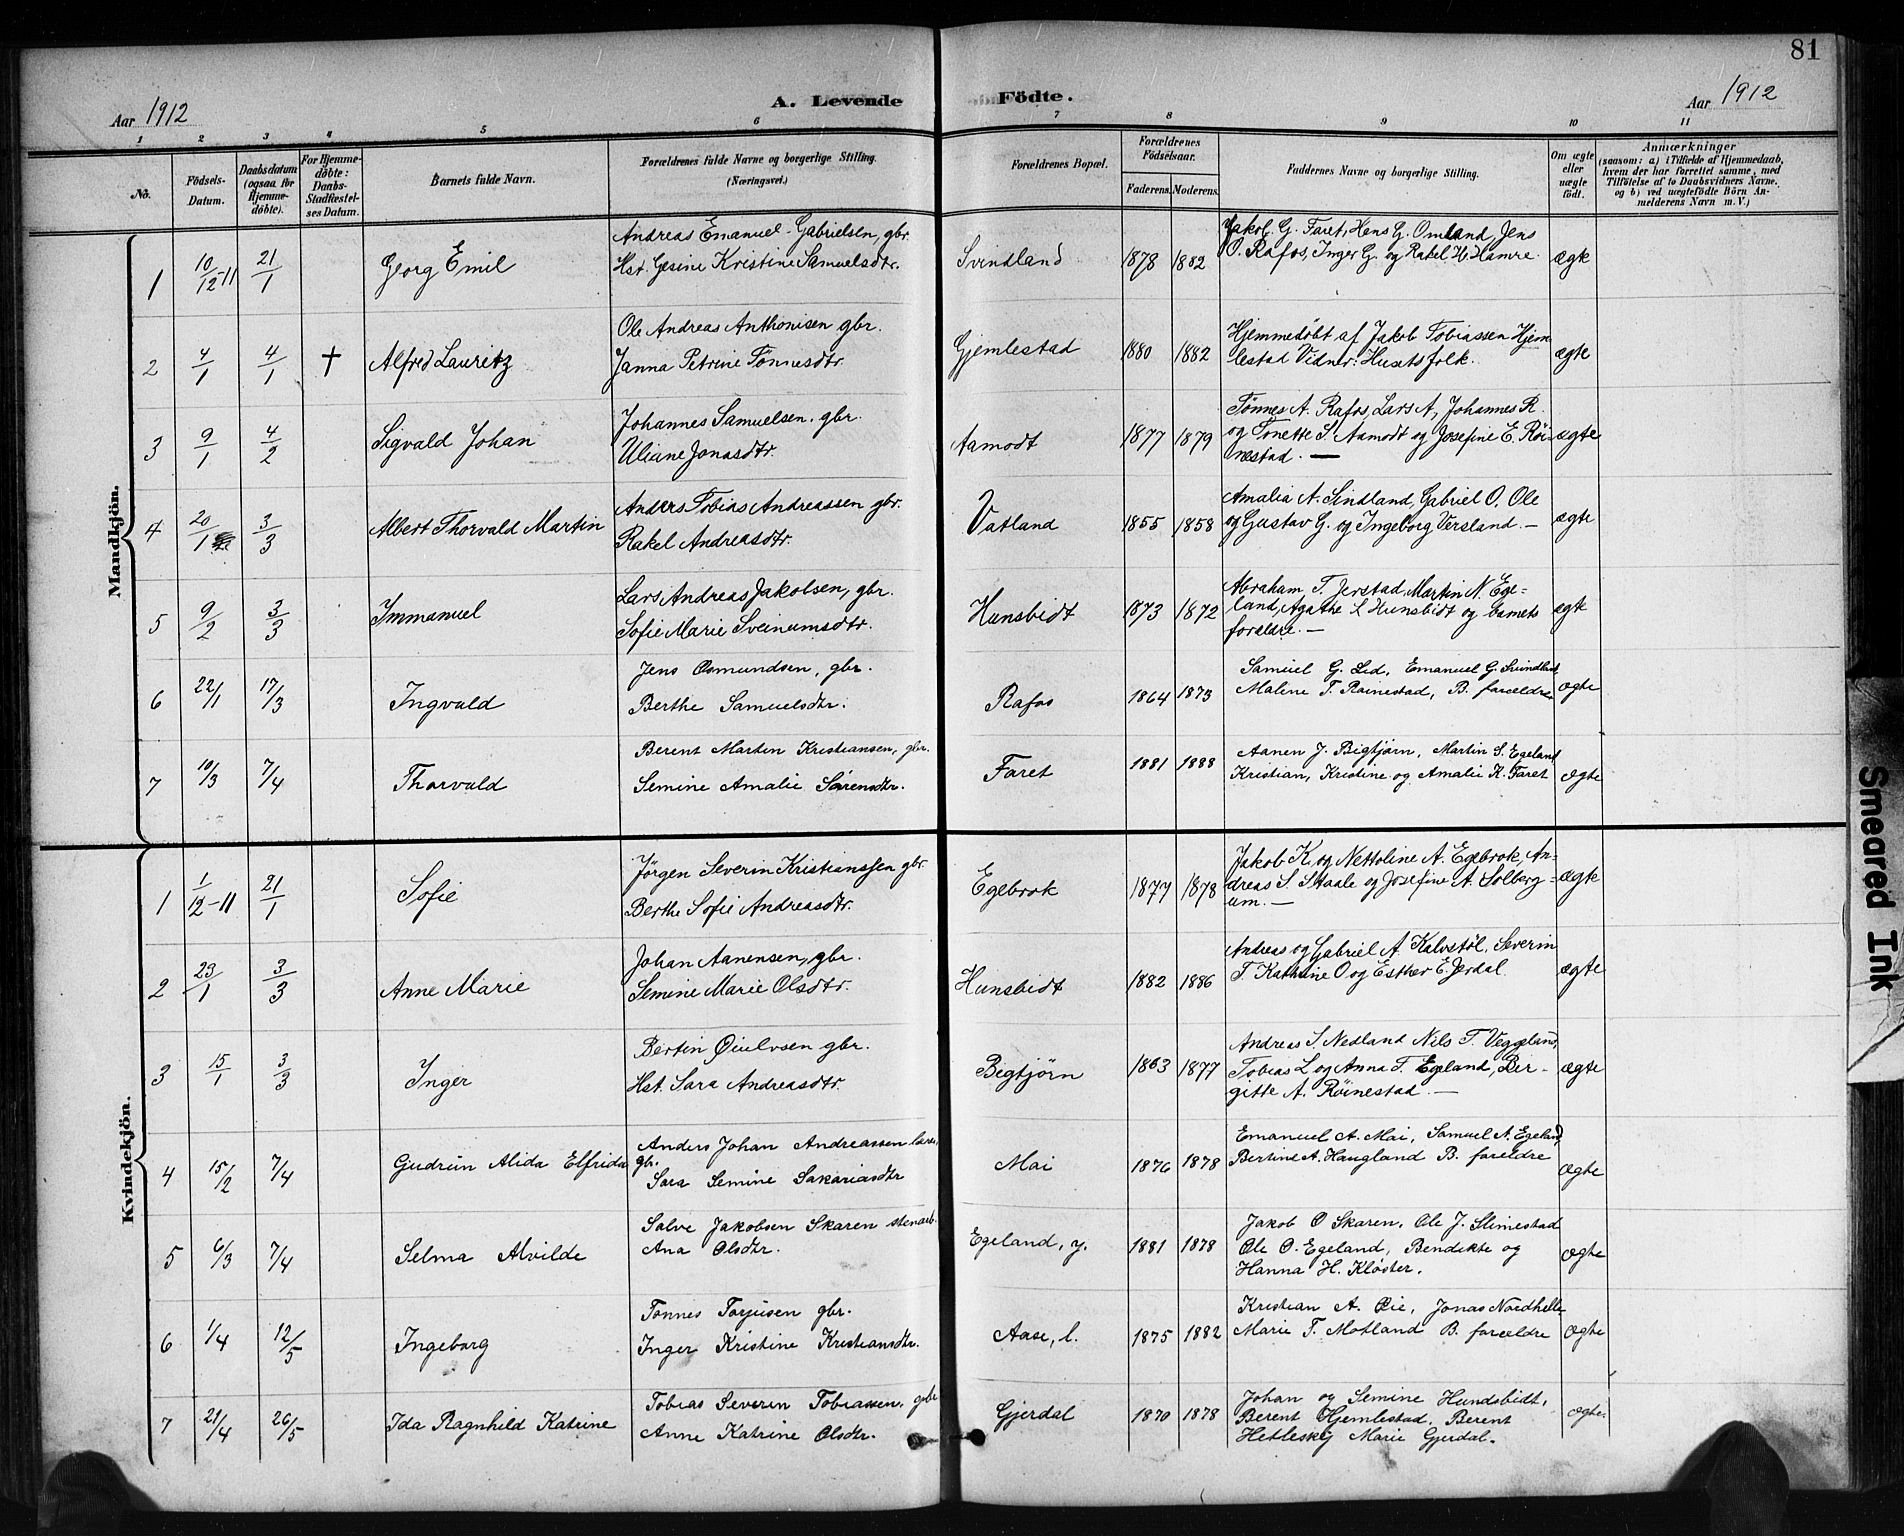 81
Aar 1912
A. Levende Födte.
Aar 1912
1 2 3 4 5 6 7 8 9 10 11
No.
Födsels-
Datum.
Daabsdatum
(ogsaa for
Hjemme-
döbte).
For Hjemme-
döbte:
Daabs-
Stadfæstel-
ses Datum.
Barnets fulde Navn.
Forældrenes fulde Navne og borgerlige Stilling.
(Næringsvei.)
Forældrenes Bopæl.
Forældrenes
Födselsaar.
Faderens. Moderens.
Faddernes Navne og borgerlige Stilling.
Om ægte
eller
uægte
födt.
Anmærkninger
(saasom: a) i Tilfælde af Hjemmedaab,
hvem der har forrettet samme, med
Tilföielse af to Daabsvidners Navne,
og b) ved uægtefödte Börn An-
melderens Navn m. V.)
Mandkjön.
1 10/12-11 21/1 Georg Emil
Andreas Emanuel Gabrielsen, gbr.
Hst. Gesine Kristine Samuelsdtr.
Svindland 1878 1882
Jakob G. Faret, Hens G. Omland, Jens
O. Rafos, Inger G. og Rakel H. Hamre.
ægte
2 4/1 4/1 † Alfred Lauritz
Ole Andreas Anthonisen gbr.
Janna Petrine Tönnesdtr.
Gjemlestad 1880 1882
Hjemmedöbt af Jakob Tobiassen Hjem
lestad Vidner: Husetsfolk.
ægte
3 9/1 4/2 Sigvald Johan
Johannes Samuelsen, gbr.
Uliane Jonasdtr.
Aamodt 1877 1879
Tönnes A. Rafos, Lars A, Johannes R.
og Tonette S. Aamodt og Josefine E. Röi-
nestad. —
ægte
4 20/1 3/3 Albert Thorvald Martin
Anders Tobias Andreassen gbr.
Rakel Andreasdtr.
Vatland 1855 1858
Amalia A. Sindland, Gabriel O. Ole
og Gustav G. og Ingeborg Versland. —
ægte
5 9/2 3/3 Immanuel
Lars Andreas Jakobsen, gbr.
Sofie Marie Sveinumsdtr.
Hunsbidt 1873 1872
Abraham T. Jerstad, Martin N. Ege-
land, Agathe L Hunsbidt og barnets
forældre. —
ægte
6 22/1 17/3 Ingvald
Jens Osmundsen, gbr.
Berthe Samuelsdtr.
Rafos 1864 1873
Samuel G. Lid, Emanuel G. Svindland
Maline T. Röinestad, B. forældre
ægte
7 10/3 7/4 Thorvald
Berent Martin Kristiansen, gbr.
Semine Amalie Sörensdtr.
Faret 1881 1888
Aanen J. Bigtjörn, Martin S. Egeland
Kristian, Kristine og Amalie K. Faret
ægte
Kvindekjön.
1 1/12-11 21/1 Sofie
Jörgen Severin Kristianssen gbr.
Berthe Sofie Andreasdtr.
Egebrok 1877 1878
Jakob K. og Nettoline A. Egebrok, An-
dreas S. Staale og Josefine A. Solberg-
um. —
ægte
2 23/1 3/3 Anne Marie
Johan Aanensen, gbr.
Semine Marie Olsdtr.
Hunsbidt 1882 1886
Andreas og Gabriel A. Kalvstöl, Severin
T Kathrine O og Esther E. Jerdal.
ægte
3 15/1 3/3 Inger
Bertin Öiulvsen gbr.
Hst. Sara Andreasdtr.
Bigtjörn 1863 1877
Andreas S. Nedland Nils T. Veggeland,
Tobias L og Anna T. Egeland, Bir-
gitte A. Röinestad. —
ægte
4 15/2 7/4 Gudrun Alida Elfrida
Anders Johan Andreassen lærer,
gb.
Sara Semine Sakariasdtr
Moi 1876 1878
Emanuel A. Moi, Samuel A. Egeland,
Bertine A. Haugland B. forældre
ægte
5 6/3 7/4 Selma Alvilde
Salve Jakobsen Skaren stenarb.
Ana Olsdtr.
Egeland, y. 1881 1878
Jakob O Skaren, Ole J. Slimestad
Ole O. Egeland, Bendikte og
Hanna H. Klöster.
ægte
6 1/4 12/5 Ingeborg
Tönnes Torjusen gbr.
Inger Kristine Kristiansdtr.
Aase, l. 1875 1882
Kristian A. Öie, Jonas Nordhelle
Marie T. Motland B. forældre
ægte
7 21/4 26/5 Ida Ragnhild Katrine
Tobias Severin Tobiassen, gbr
Anne Katrine Olsdtr.
Gjerdal 1870 1878
Johan og Semine Hundsbidt,
Berent Hjemlestad, Berent
Hetlesky Marie Gjerdal.
ægte.
Smeared Ink